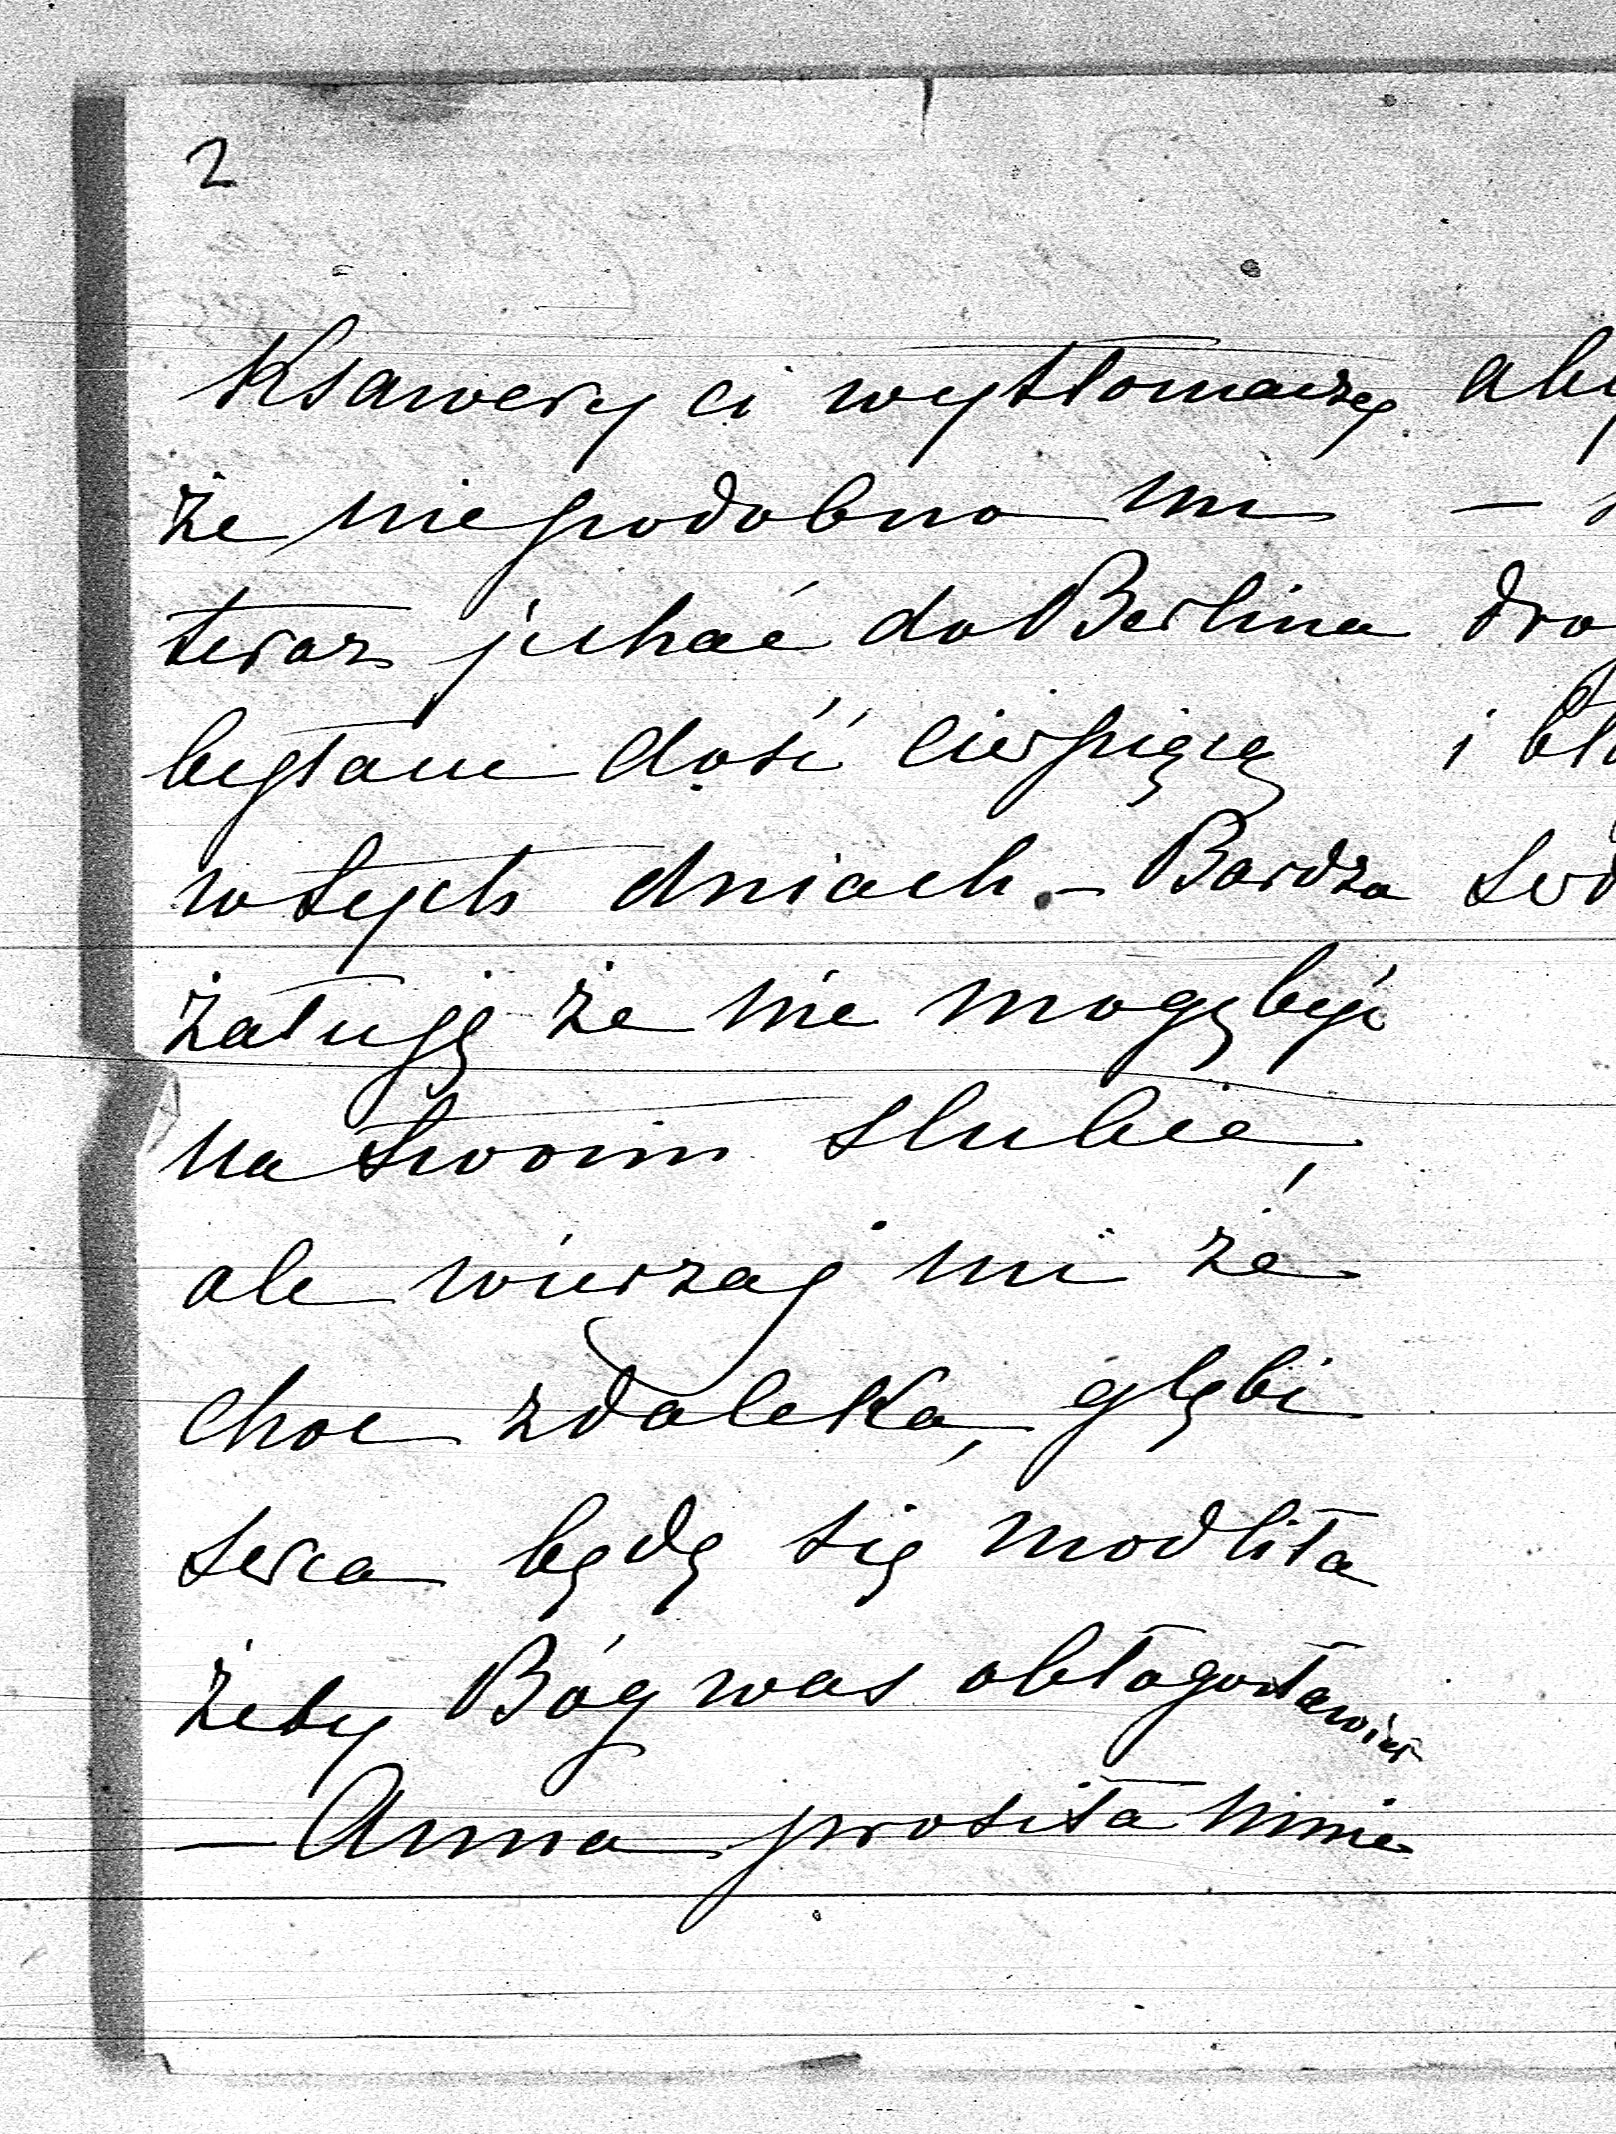 2
Ksawery ci wytłomaczy
że niepodobno mi
teraz jechać do Berlina
byłam dość cierpiącą
w tych dniach. – Bardzo
żałuję że nie mogę być
na twoim slubie,
ale wierzaj mi że
choc zdaleka, głębi
serca będę się modliła
żeby Bóg was obłogosławił
– Anna prosiła mnie
aby
–
dro
i bło